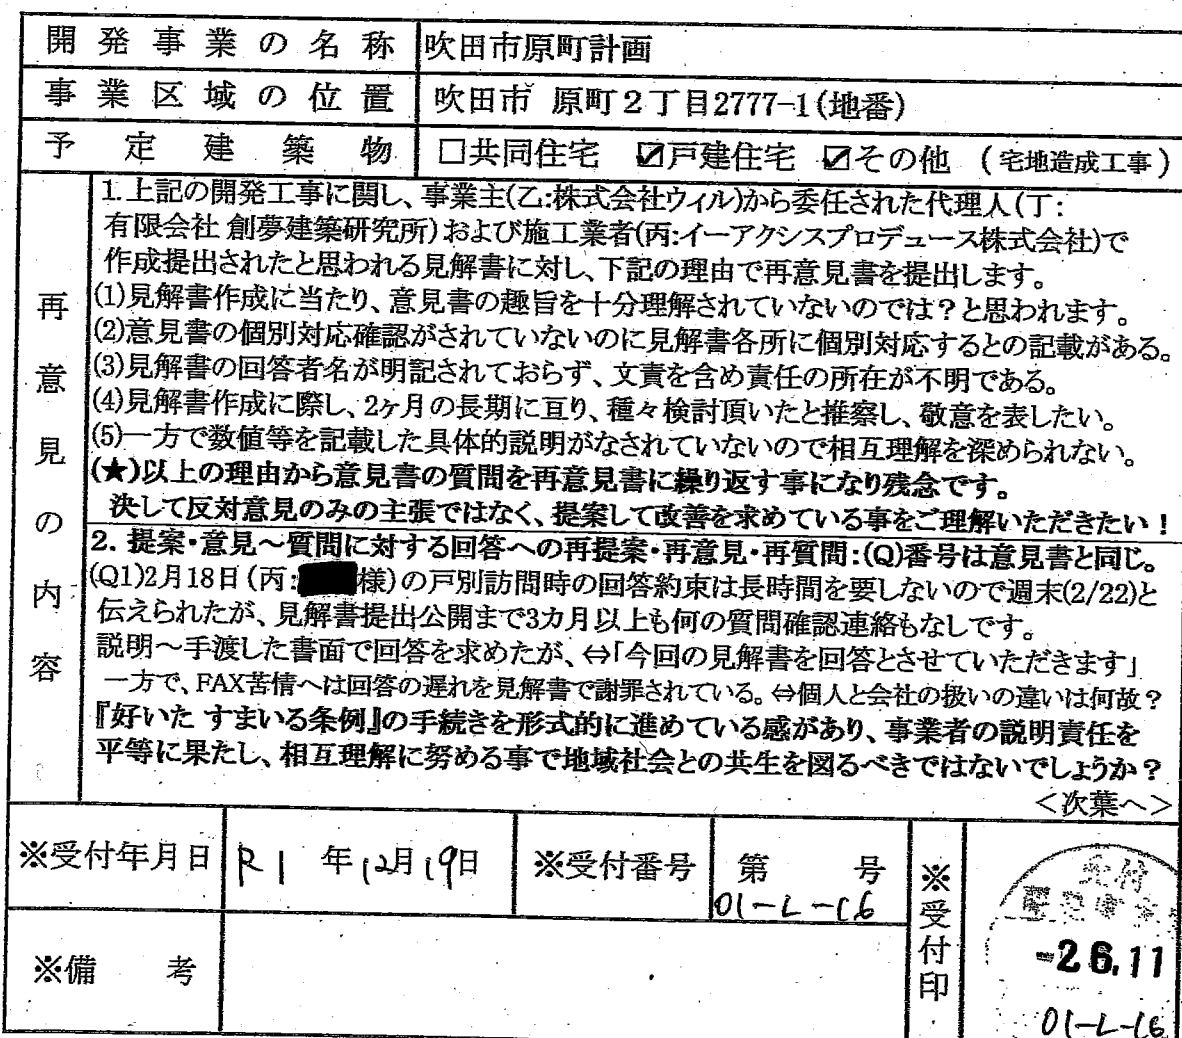 開発事業の名称 吹田市原町計画
事業区域の位置 吹田市 原町2丁目2777-1(地番)
予定建築物 □共同住宅 ☑戸建住宅 ☑その他 (宅地造成工事)
再意見の内容
1.上記の開発工事に関し、事業主(乙:株式会社ウィル)から委任された代理人(丁:
有限会社 創夢建築研究所)および施工業者(丙:イーアクシスプロデュース株式会社)で
作成提出されたと思われる見解書に対し、下記の理由で再意見書を提出します。
(1)見解書作成に当たり、意見書の趣旨を十分理解されていないのでは?と思われます。
(2)意見書の個別対応確認がされていないのに見解書各所に個別対応するとの記載がある。
(3)見解書の回答者名が明記されておらず、文責を含め責任の所在が不明である。
(4)見解書作成に際し、2ヶ月の長期に亘り、種々検討頂いたと推察し、敬意を表したい。
(5)一方で数値等を記載した具体的説明がなされていないので相互理解を深められない。
(★)以上の理由から意見書の質問を再意見書に繰り返す事になり残念です。
決して反対意見のみの主張ではなく、提案して改善を求めている事をご理解いただきたい!
2. 提案・意見~質問に対する回答への再提案・再意見・再質問:(Q)番号は意見書と同じ。
(Q1)2月18日(丙: 様)の戸別訪問時の回答約束は長時間を要しないので週末(2/22)と
伝えられたが、見解書提出公開まで3カ月以上も何の質問確認連絡もなしです。
説明~手渡した書面で回答を求めたが、⇔「今回の見解書を回答とさせていただきます」
一方で、FAX苦情へは回答の遅れを見解書で謝罪されている。⇔個人と会社の扱いの違いは何故?
『好いた すまいる条例』の手続きを形式的に進めている感があり、事業者の説明責任を
平等に果たし、相互理解に努める事で地域社会との共生を図るべきではないでしょうか?
<次葉へ>
※受付年月日 R1 年12月19日 ※受付番号 第 号
01-L-16
※受付印
受付
-2 6.11
01-L-16
※備考